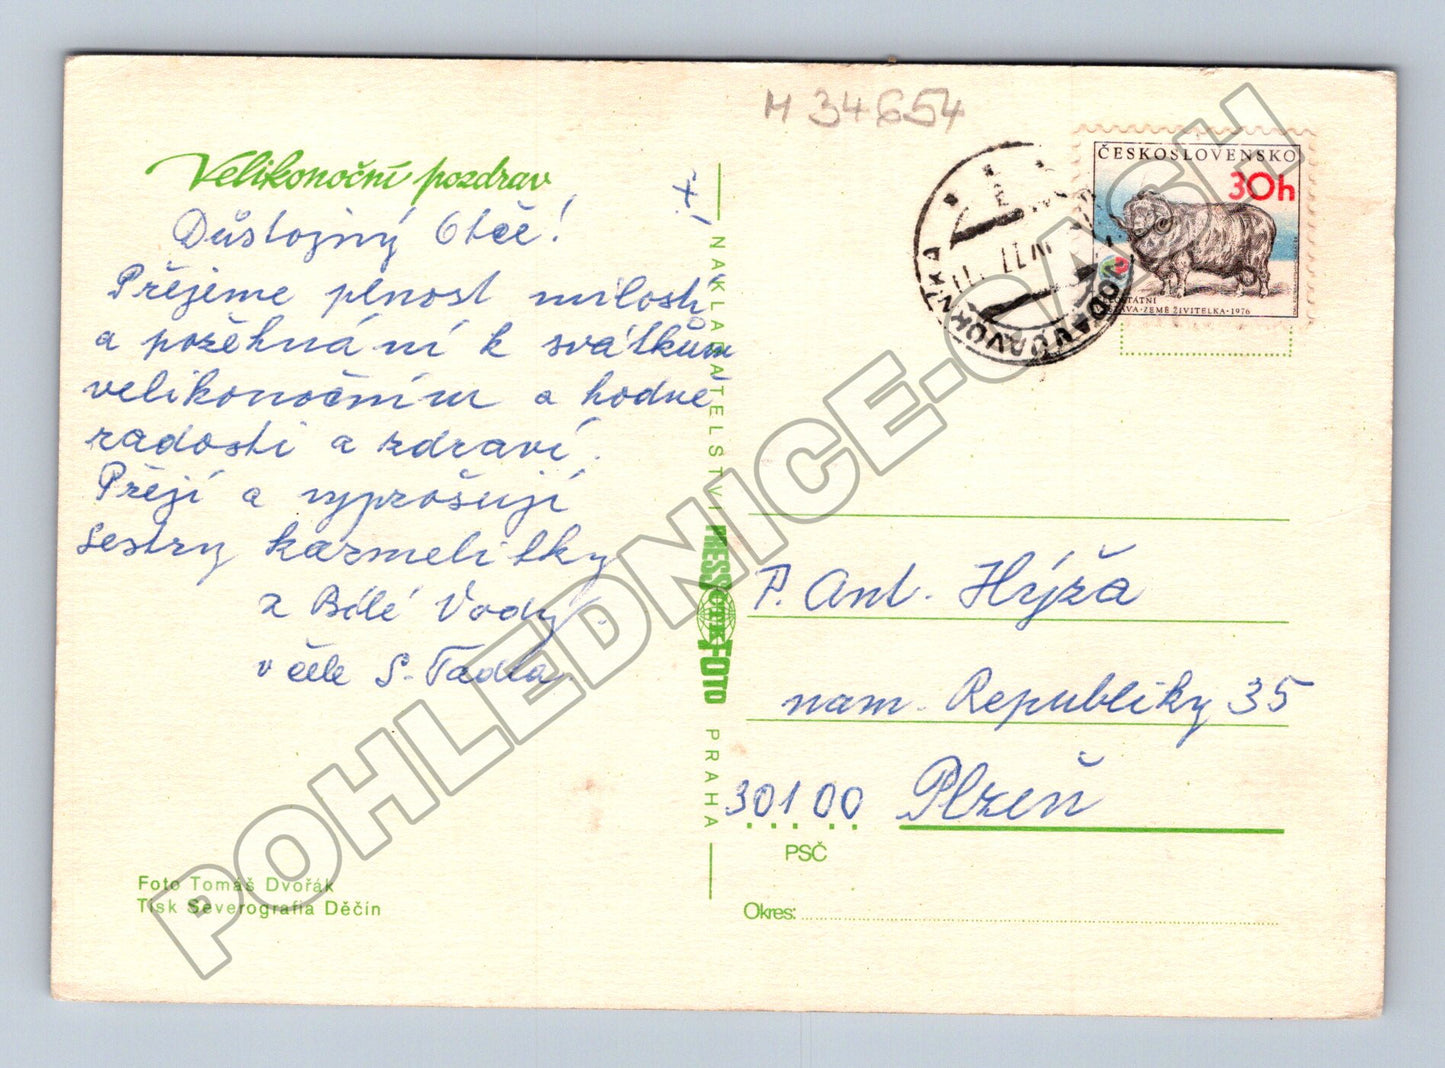 M 34654
Velikonoční pozdrav
+!
Důstojný Otče!
Přejeme plnost milosti
a požehnání k svátkům
velikonočním a hodně
radosti a zdraví.
Přejí a vyprošují
Sestry karmelitky
z Bílé Vody.
v čele S. Tadea
Foto Tomáš Dvořák
Tisk Severografia Děčín
NAKLADATELSTVÍ PRESSFOTO PRAHA
ČESKOSLOVENSKO
30h
CELOSTÁTNÍ
VÝSTAVA·ZEMĚ ŽIVITELKA·1976
P. Ant. Hýža
nam. Republiky 35
30100 Plzeň
PSČ
Okres:
POHLEDNICE-CASH